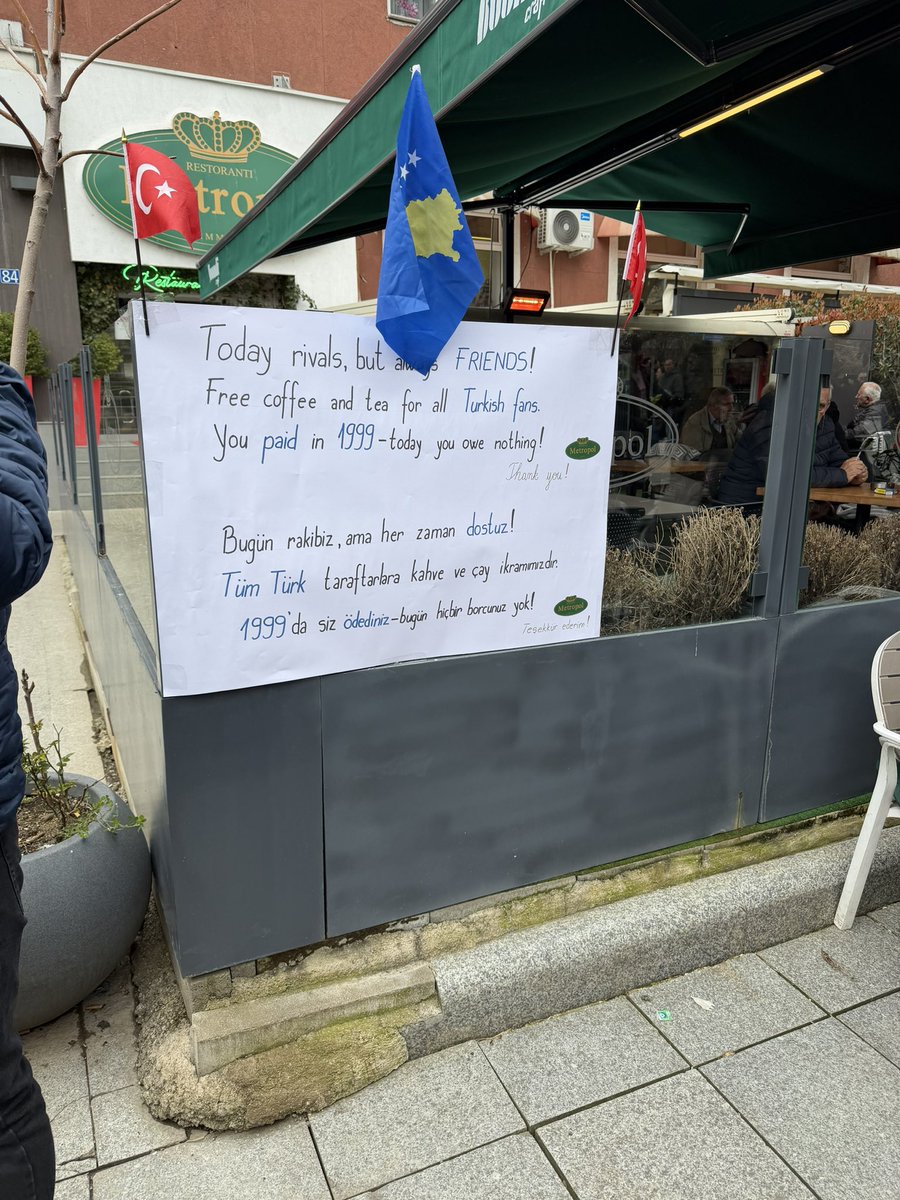 RESTORANTI
84
Today rivals, but FRIENDS!
Free coffee and tea for all Turkish fans.
You paid in 1999 - today you owe nothing!
Metropol
Thank you!
Bugün rakibiz, ama her zaman dostuz!
Tüm Türk taraftarlara kahve ve çay ikramımızdır.
1999'da siz ödediniz - bugün hiçbir borcunuz yok!
Metropol
Teşekkür ederim!